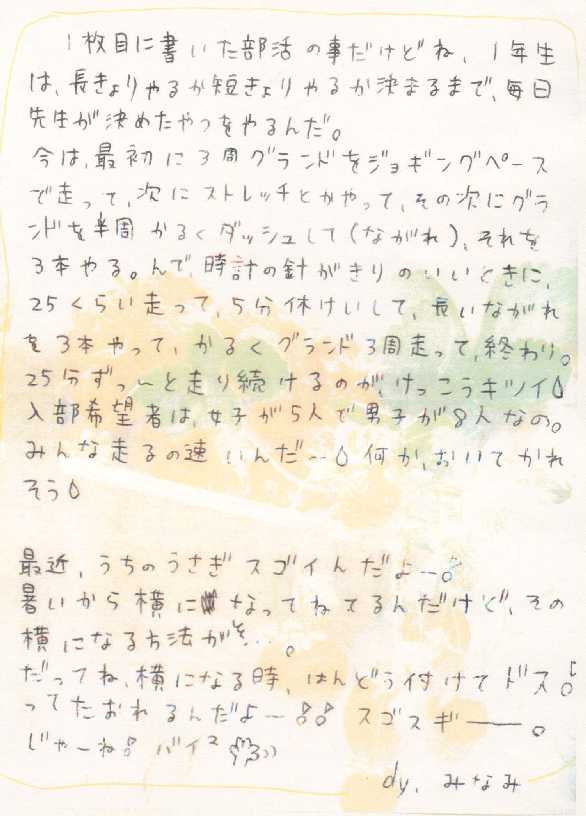 1枚目に書いた部活の事だけどね、1年生
は、長きょりやるか短きょりやるか決まるまで、毎日
先生が決めたやつをやるんだ。
今は、最初に3周グランドをジョギングペース
で走って、次にストレッチとかやって、その次にグラ
ンドを半周かるくダッシュして(ながれ)、それを
3本やる。んで、時計の針がきりのいいときに、
25くらい走って、5分休けいして、長いながれ
を3本やって、かるくグランド3周走って、終わり。
25分ずっ〜と走り続けるのが、けっこうキツイ
入部希望者は、女子が5人で男子が8人なの。
みんな走るの速いんだ〜 何か、おいてかれ
そう
最近、うちのうさぎスゴイんだよー。
暑いから横になってねてるんだけど、その
横になる方法がさ…。
だってね、横になる時、はんどう付けてドス♪
ってたおれるんだよ〜 スゴスギー。
じゃーね バイ2
dy. みなみ